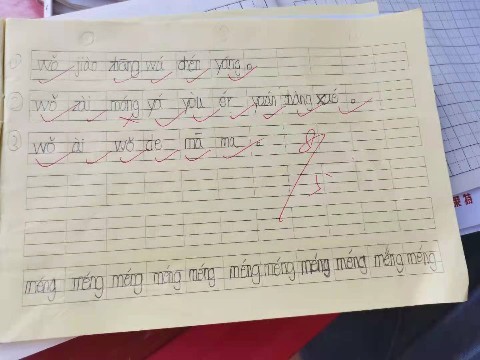 ① wǒ jiào zhāng wá chén yáng。
② wǒ zài móng yá yòu ér yoán shàng xué。
③ wǒ ài wǒ de mā ma。
8/5
méng méng méng méng méng méng méng méng méng méng méng